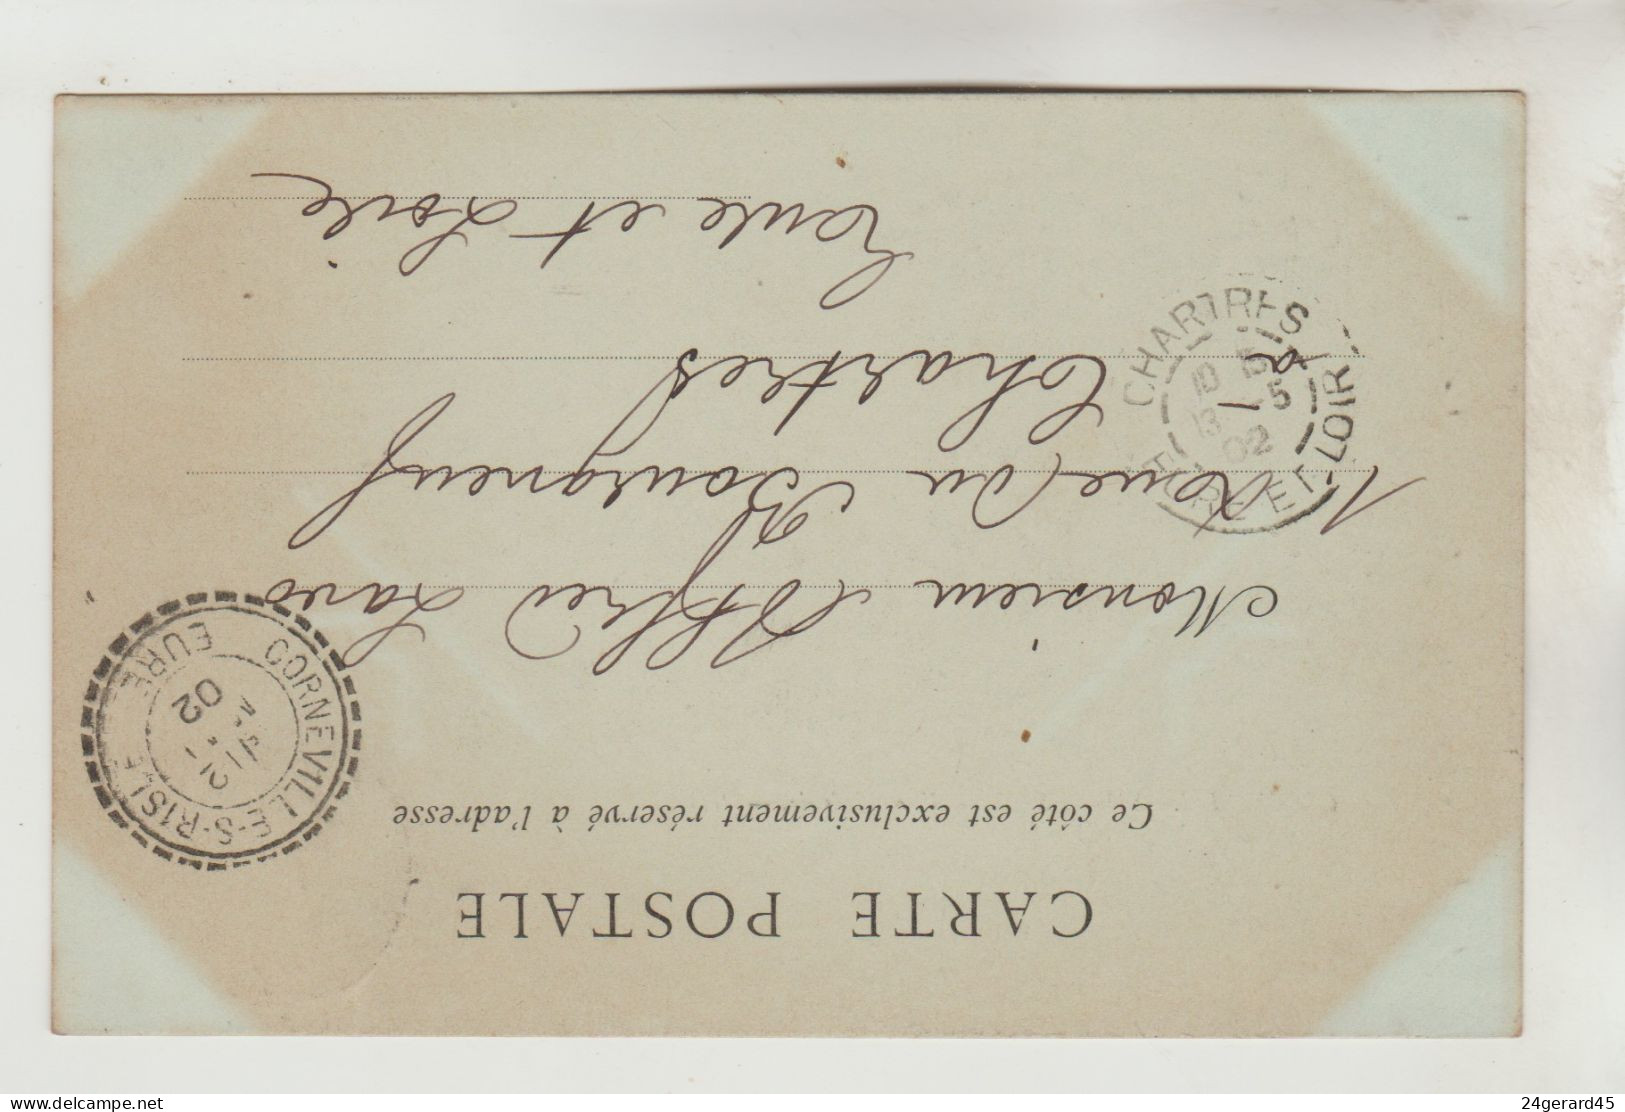 CARTE POSTALE
Ce côté est exclusivement réservé à l'adresse
Monsieur Alfred
1 Rue du Bourgneuf
à Chartres
Eure et Loire
CORNEVILLE-S-RISLE
EURE
02
CHARTRES
EURE ET LOIR
13 -5
02
www.delcampe.net
24gerard45